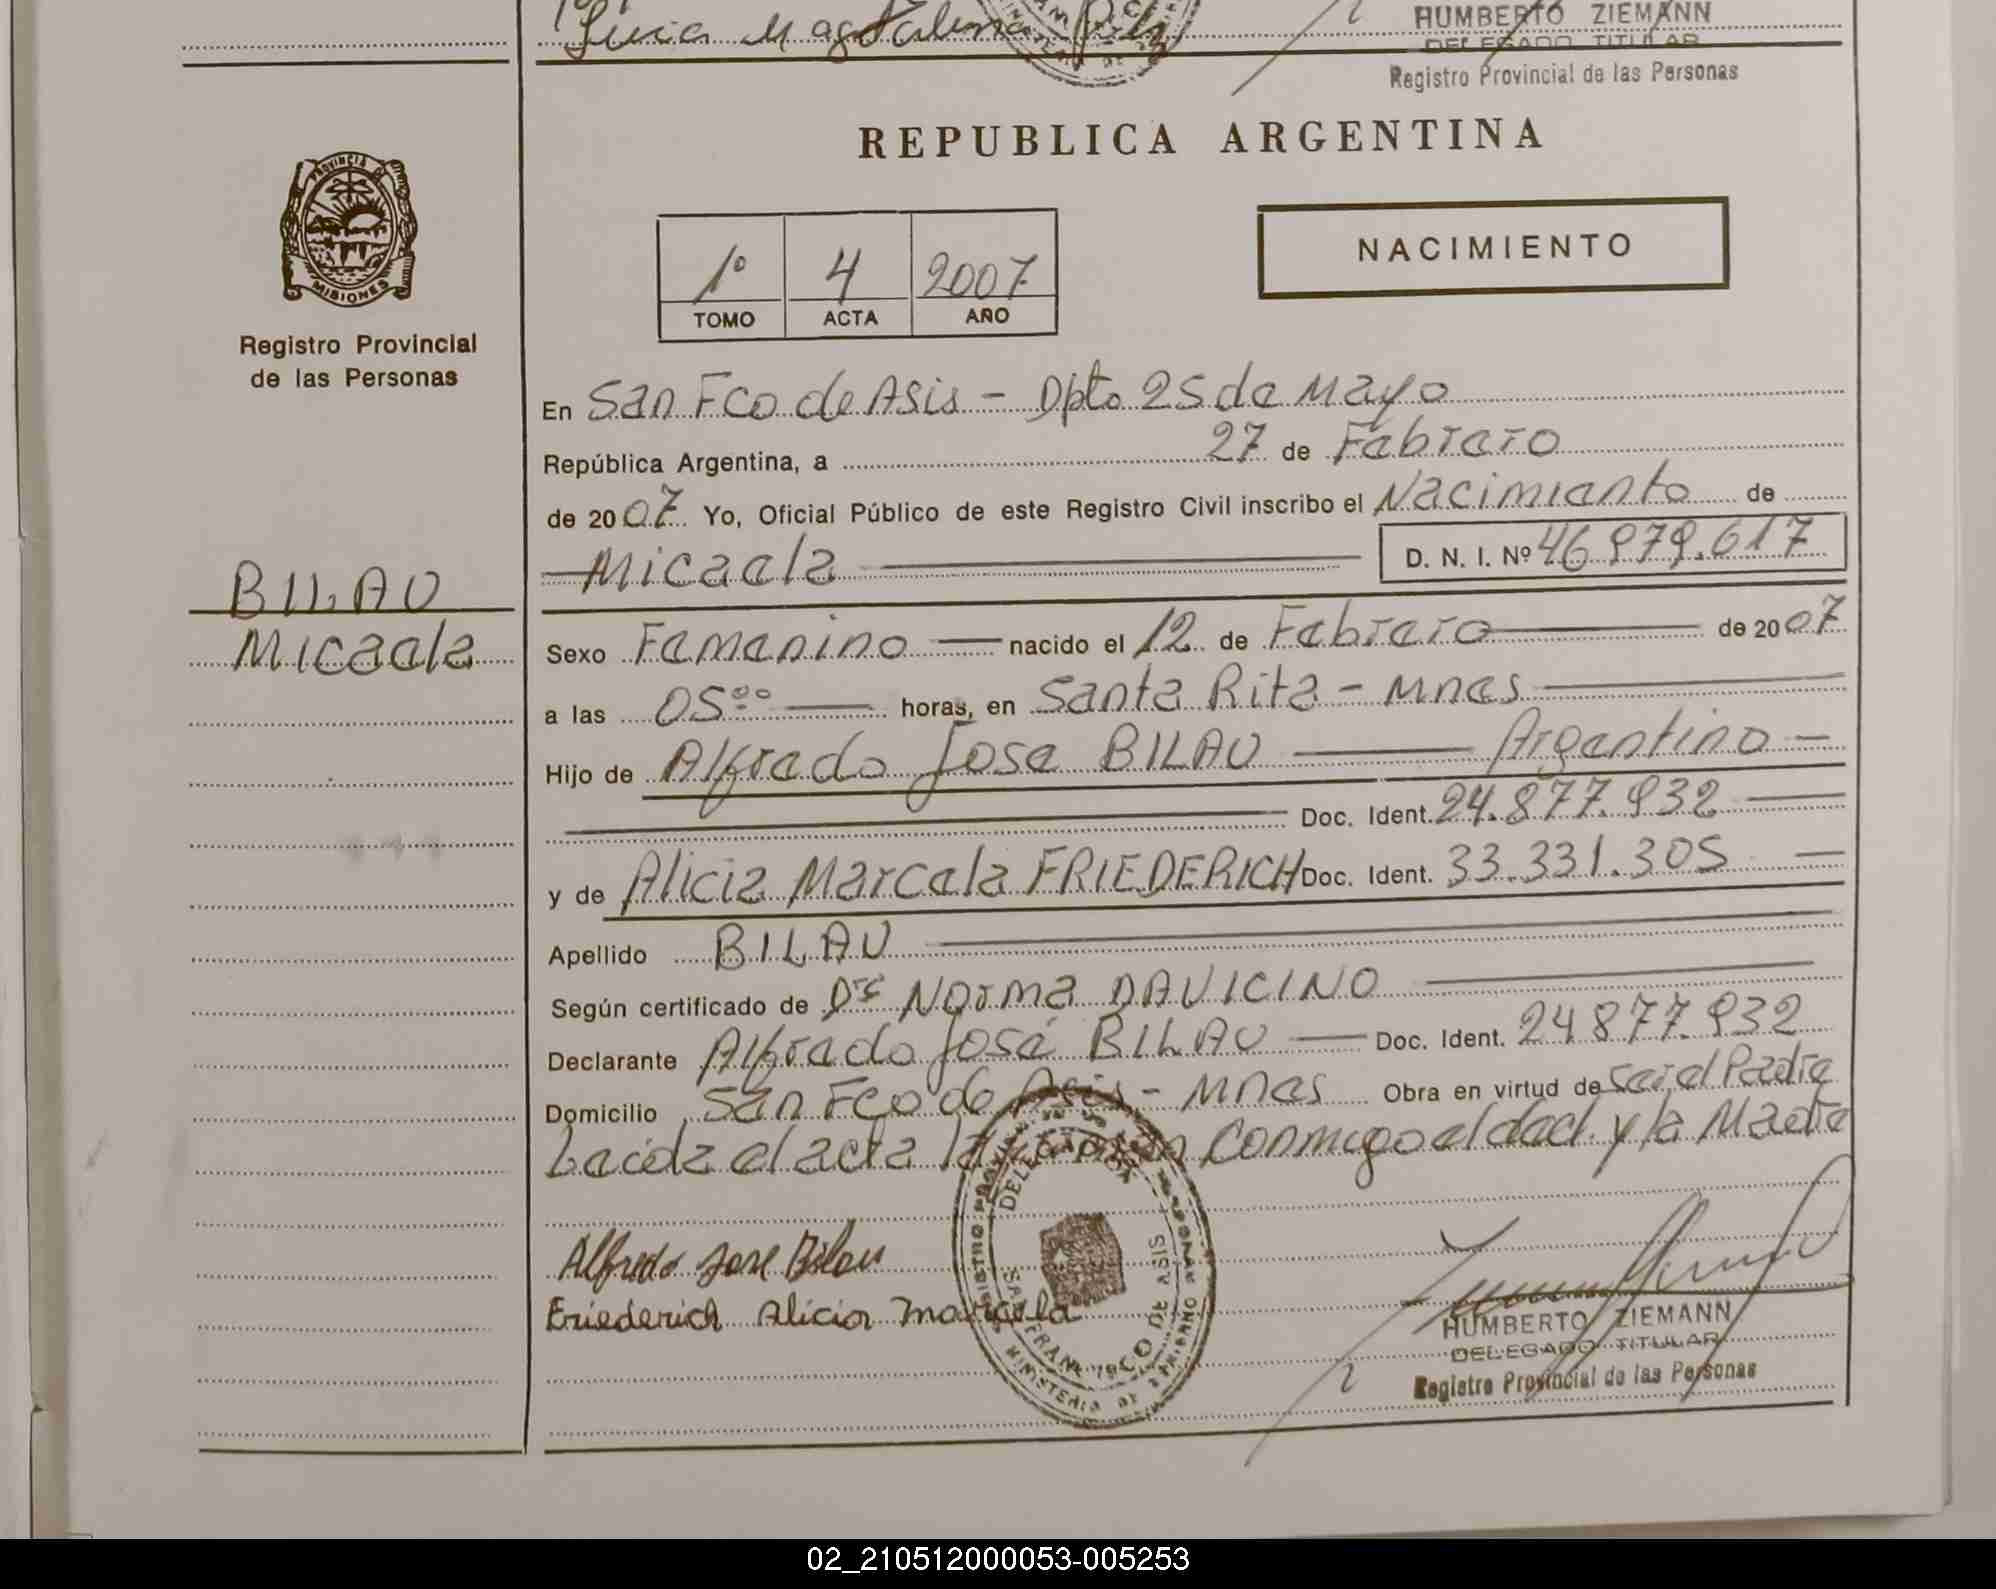 Lucia Magdalena
HUMBERTO ZIEMANN
DELEGADO TITULAR
Registro Provincial de las Personas
REPUBLICA ARGENTINA
PROVINCIA DE
MISIONES
Registro Provincial
de las Personas
NACIMIENTO
1º 4 2007
TOMO ACTA AÑO
En San Fco de Asis - Dpto 25 de Mayo
República Argentina, a 27 de Febrero
de 2007 Yo, Oficial Público de este Registro Civil inscribo el Nacimiento de
Micaela D. N. I. Nº 46 979.617
BILAU
Micaela
Sexo Femenino nacido el 12 de Febrero de 2007
a las 05:00 horas, en Santa Rita - Mnes
Hijo de Alfredo Jose BILAU Argentino
Doc. Ident. 24.877.932
y de Alicia Marcela FRIEDERICH Doc. Ident. 33.331.305
Apellido BILAU
Según certificado de Dra Norma DAVICINO
Declarante Alfredo José BILAU Doc. Ident. 24 877.932
Domicilio San Fco de Asis - Mnes Obra en virtud de Ser el Padre
Leida el acta la firman conmigo el decl. y la Madre
Alfredo Jose Bilau
Friederich Alicia Marcela
DELEGACION
SAN FRANCISCO DE ASIS
HUMBERTO ZIEMANN
DELEGADO TITULAR
Registro Provincial de las Personas
02_210512000053-005253